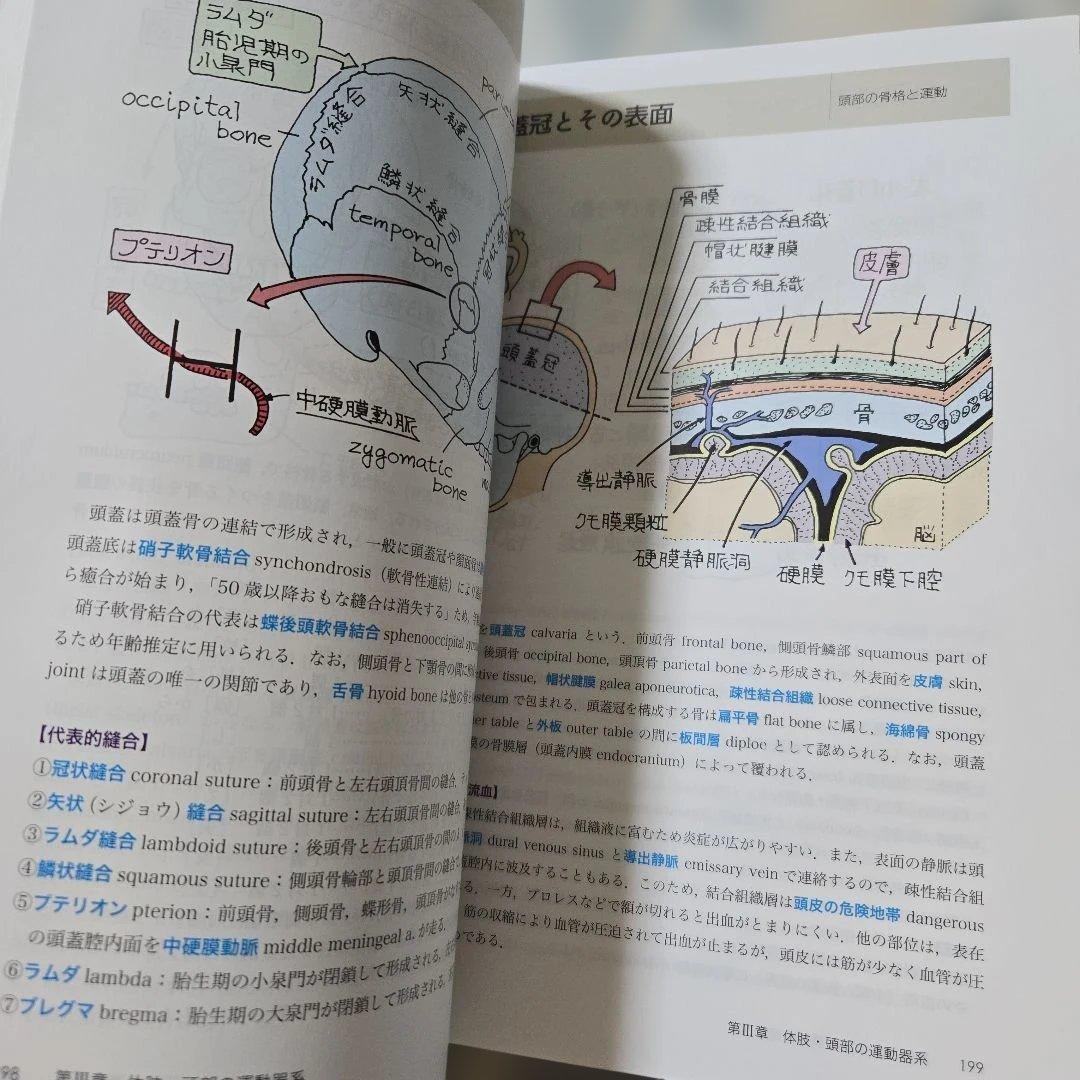 ラムダ
胎児期の
小泉門
occipital
bone
矢状縫合
ラムダ縫合
鱗状縫合
temporal
bone
プテリオン
中硬膜動脈
zygomatic
bone
頭蓋は頭蓋骨の連結で形成され，一般に頭蓋冠や
頭蓋底は硝子軟骨結合 synchondrosis（軟骨性連結）により
ら癒合が始まり，「50 歳以降おもな縫合は消失する」ため，
硝子軟骨結合の代表は蝶後頭軟骨結合 sphenooccipital
るため年齢推定に用いられる．なお，側頭骨と下顎骨の間に
joint は頭蓋の唯一の関節であり，舌骨 hyoid bone は他の骨と
【代表的縫合】
①冠状縫合 coronal suture：前頭骨と左右頭頂骨間の縫合．
②矢状（シジョウ）縫合 sagittal suture：左右頭頂骨間の縫合．
③ラムダ縫合 lambdoid suture：後頭骨と左右頭頂骨の間の
④鱗状縫合 squamous suture：側頭骨輪部と頭頂骨間の縫合
⑤プテリオン pterion：前頭骨，側頭骨，蝶形骨，頭頂骨が
の頭蓋腔内面を中硬膜動脈 middle meningeal a. が走る．
⑥ラムダ lambda：胎生期の小泉門が閉鎖して形成される．
⑦ブレグマ bregma：胎生期の大泉門が閉鎖して形成される．
98 第III章 体肢・頭部の運動器系
蓋冠とその表面
頭部の骨格と運動
骨膜
疎性結合組織
帽状腱膜
結合組織
皮膚
頭蓋冠
骨
導出静脈
クモ膜顆粒
硬膜静脈洞
硬膜
クモ膜下腔
脳
を頭蓋冠 calvaria という．前頭骨 frontal bone，側頭骨鱗部 squamous part of
後頭骨 occipital bone，頭頂骨 parietal bone から形成され，外表面を皮膚 skin，
tive tissue，帽状腱膜 galea aponeurotica，疎性結合組織 loose connective tissue，
osteum で包まれる．頭蓋冠を構成する骨は扁平骨 flat bone に属し，海綿骨 spongy
er table と外板 outer table の間に板間層 diploe として認められる．なお，頭蓋
膜の骨膜層（頭蓋内膜 endocranium）によって覆われる．
流血】
疎性結合組織層は，組織液に富むため炎症が広がりやすい．また，表面の静脈は頭
脈洞 dural venous sinus と導出静脈 emissary vein で連絡するので，疎性結合組
腔内に波及することもある．このため，結合組織層は頭皮の危険地帯 dangerous
る．一方，プロレスなどで額が切れると出血がとまりにくい．他の部位は，表在
筋の収縮により血管が圧迫されて出血が止まるが，頭皮には筋が少なく血管が圧
である．
第III章 体肢・頭部の運動器系 199